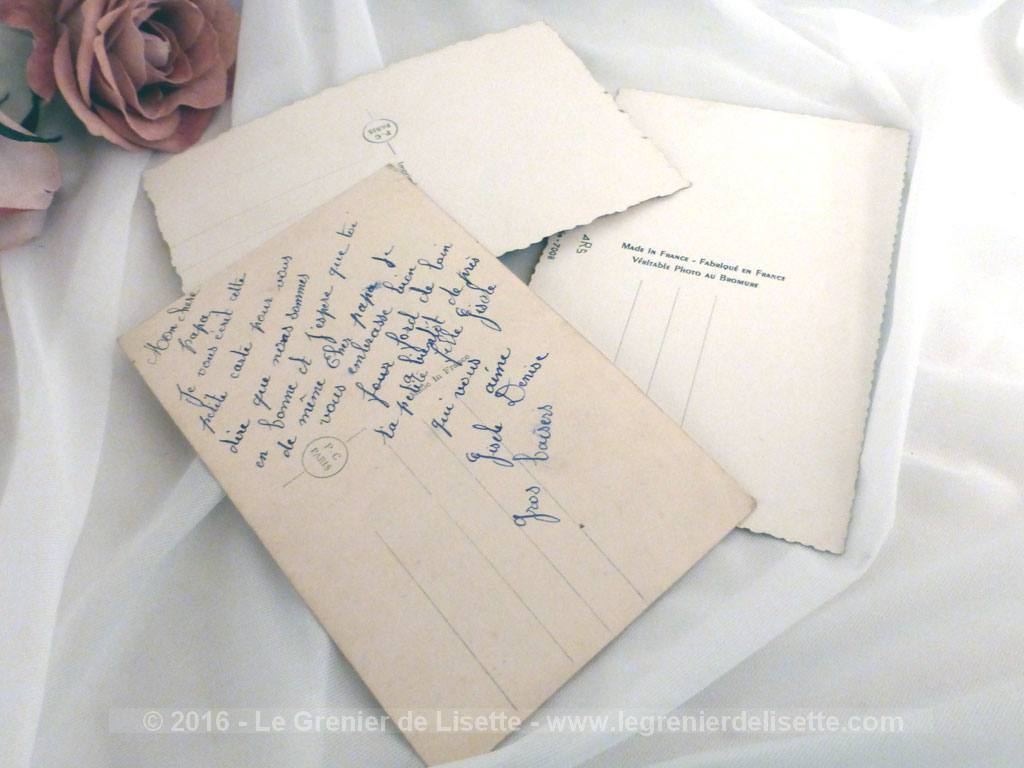 P-C
PARIS
ARS
7008
MADE IN FRANCE - FABRIQUÉ EN FRANCE
VÉRITABLE PHOTO AU BROMURE
Mon
Papa
Je vous écrit cette
petite carte pour vous
dire que nous sommes
en bonne et j'espere que toi
de même Cher papa Je
vous embrasse bien
fort de loin
a bientôt de
ta petite fille Gisele
qui vous aime
Gisele Denise
gros baisers
P-C
PARIS
© 2016 - Le Grenier de Lisette - www.legrenierdelisette.com